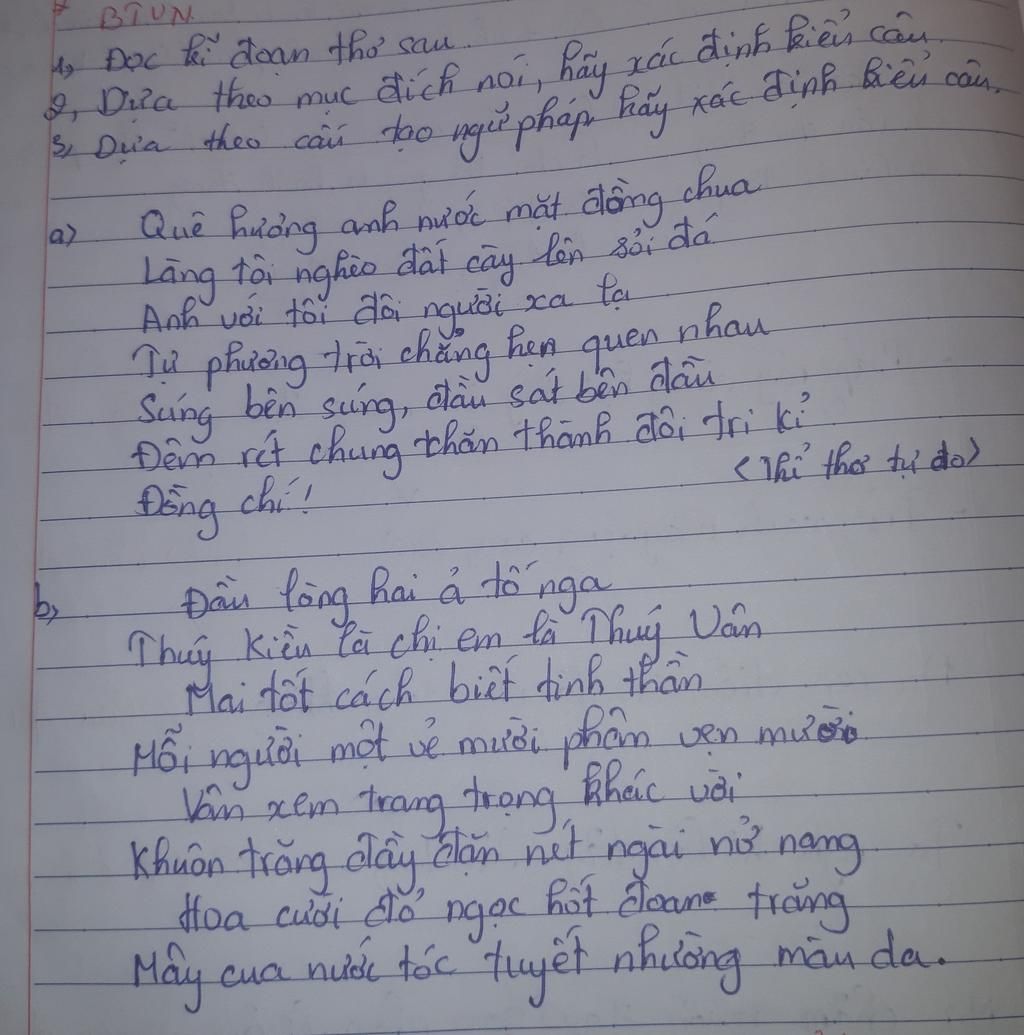 * BTVN
1, Đọc kĩ đoạn thơ sau.
2, Dựa theo mục đích nói, hãy xác định kiểu câu.
3, Dựa theo cấu tạo ngữ pháp hãy xác định kiểu câu.
a) Quê hương anh nước mặt đồng chua
Làng tôi nghèo đất cày lên sỏi đá
Anh với tôi đôi người xa lạ
Tự phương trời chẳng hẹn quen nhau
Súng bên súng, đầu sát bên đầu
Đêm rét chung chăn thành đôi tri kỉ
Đồng chí! <Thể thơ tự do>
b, Đầu lòng hai ả tố nga
Thuý Kiều là chị em là Thuý Vân
Mai tốt cách biết tinh thần
Mỗi người một vẻ mười phân vẹn mười
Vân xem trang trọng khác vời
Khuôn trăng đầy đặn nét ngài nở nang
Hoa cười đỏ ngọc hốt đoan trăng
Mây cua nước tóc tuyết nhường màu da.